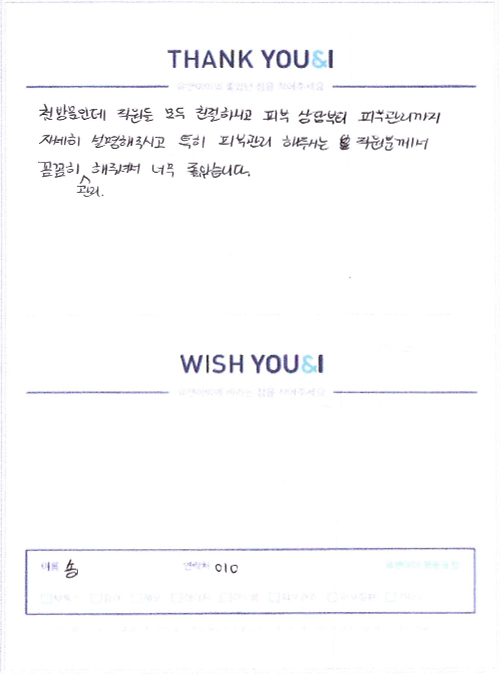 THANK YOU&I
유앤아이의 좋았던 점을 적어주세요
첫방문인데 직원들 모두 친절하시고 피부 상담부터 피부관리까지
자세히 설명해주시고 특히 피부관리 해주시는 직원분께서
꼼꼼히 관리 해주셔서 너무 좋았습니다.
WISH YOU&I
유앤아이에 바라는 점을 적어주세요
이름 송 연락처 010